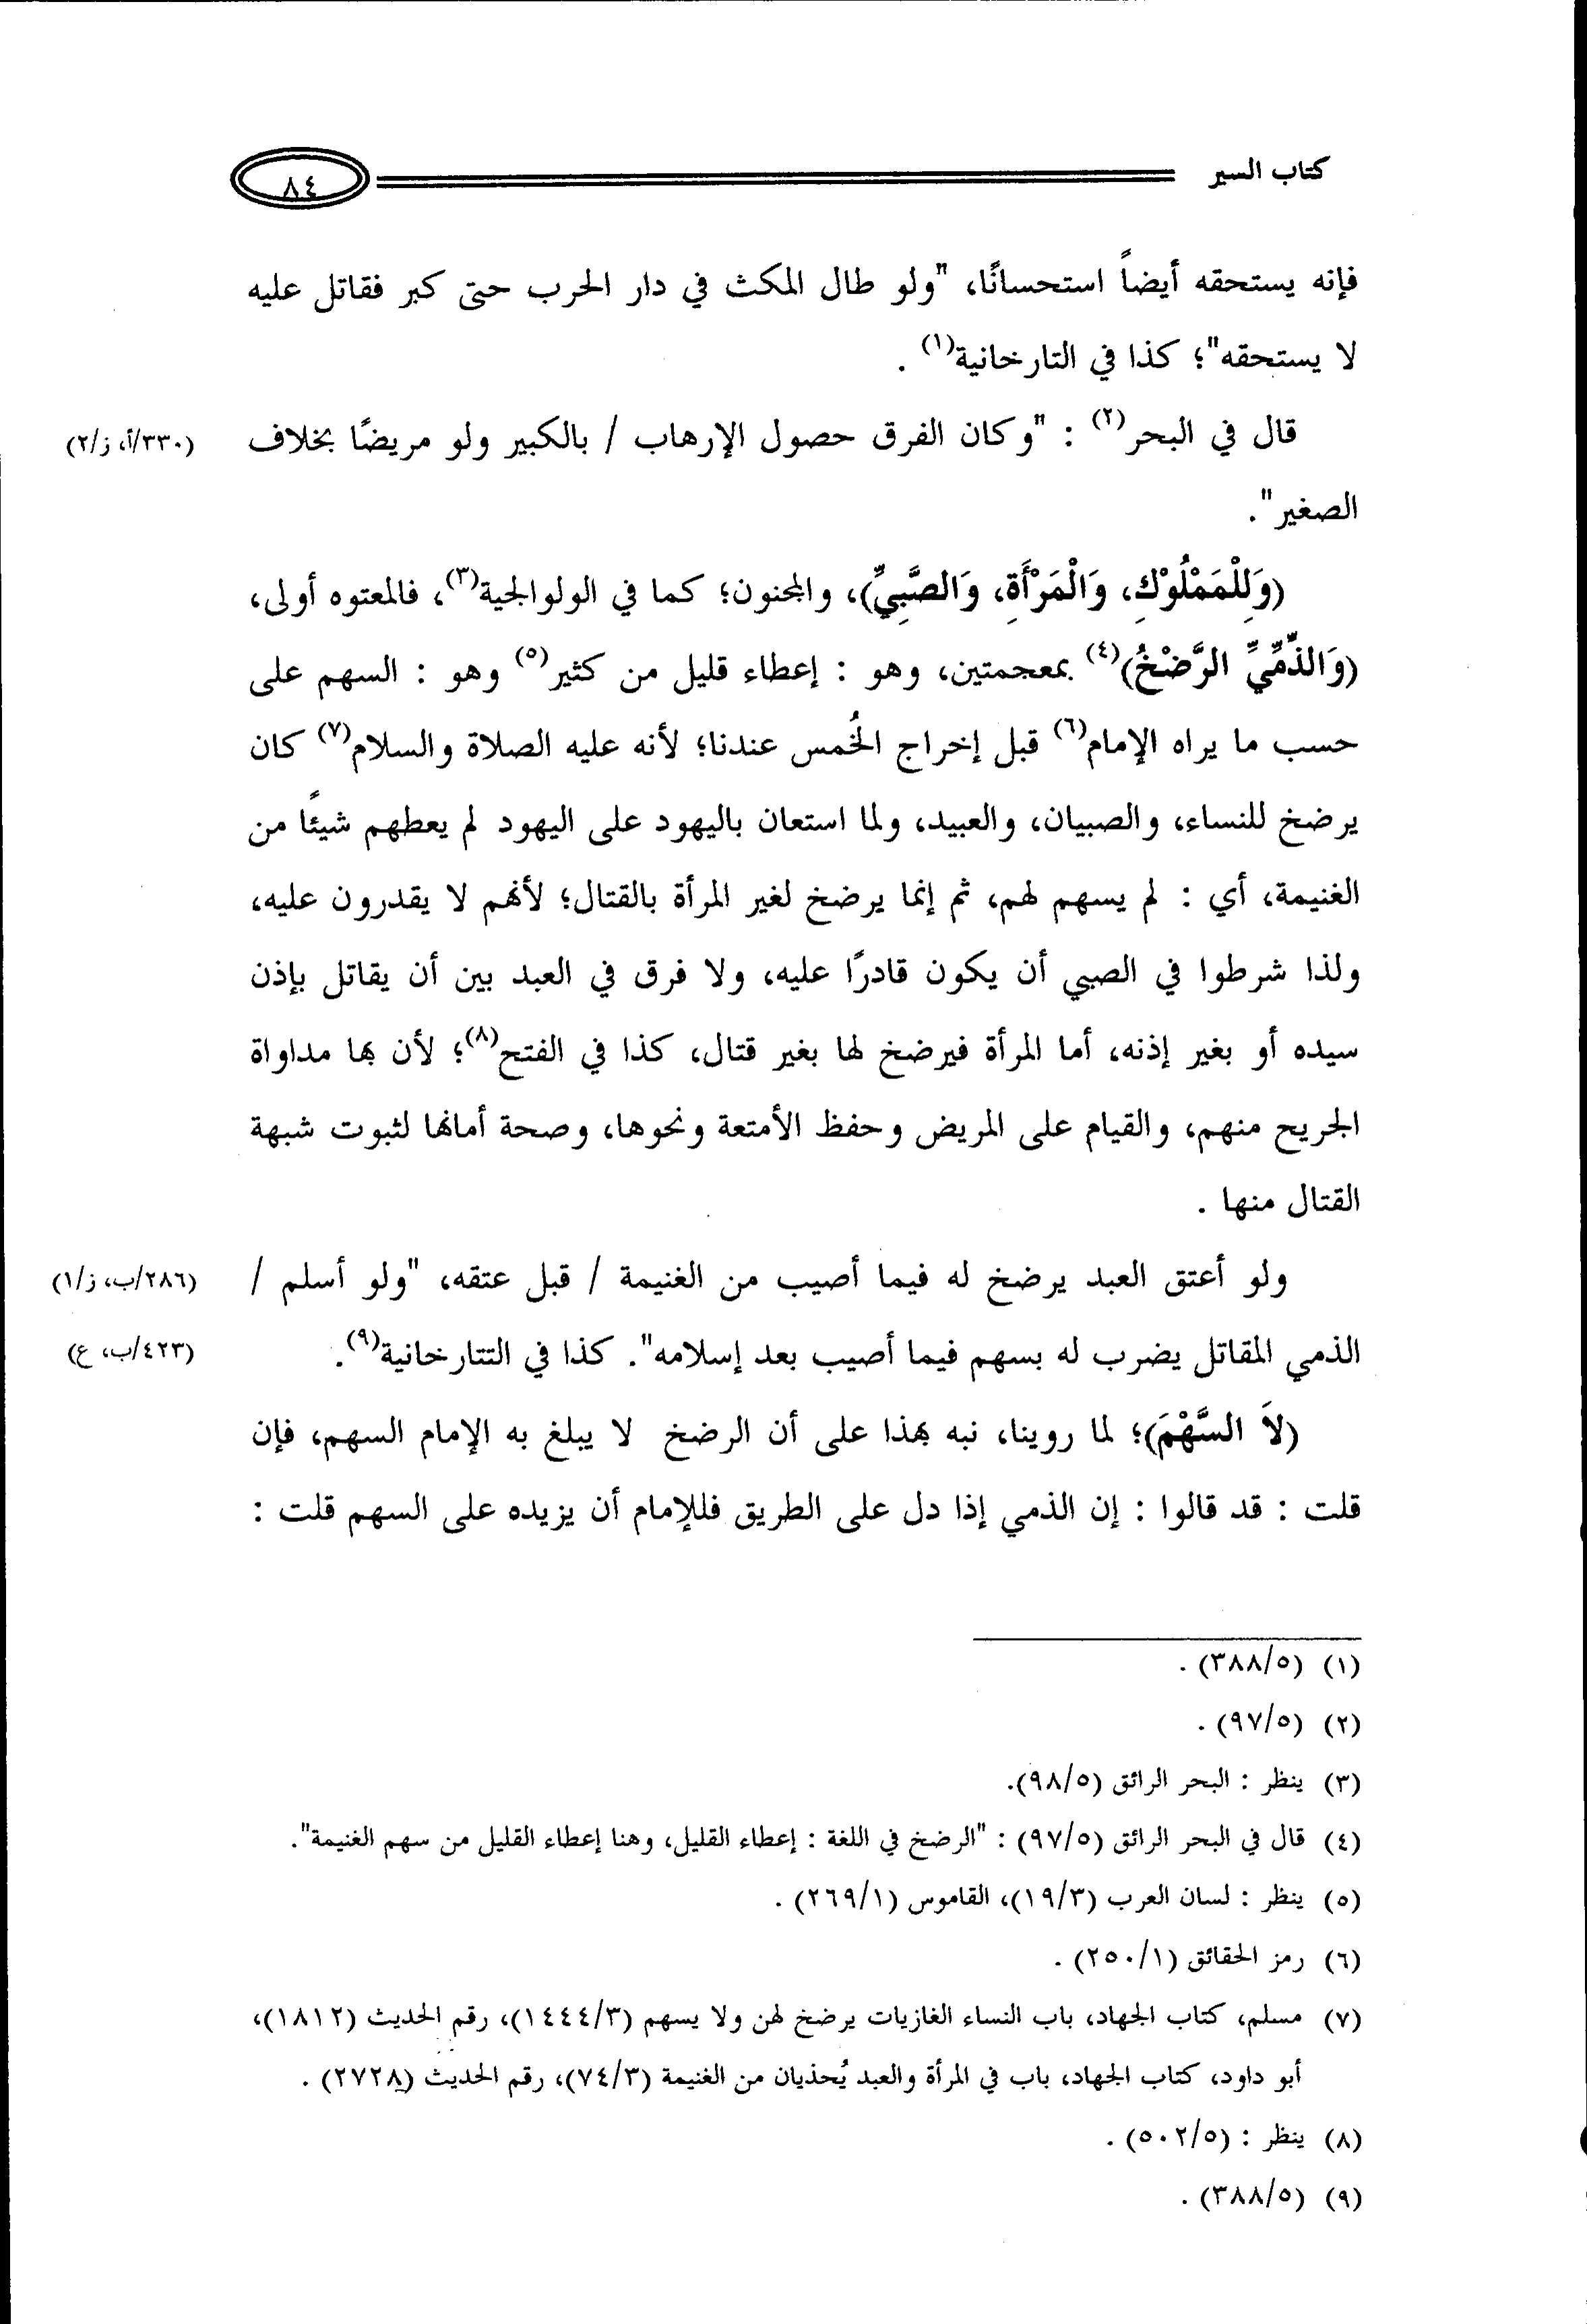 كتاب السير
٨٤
فإنه يستحقه أيضاً استحسانًا، "ولو طال المكث في دار الحرب حتى كبر فقاتل عليه
لا يستحقه"؛ كذا في التارخانية(١) .
قال في البحر(٢) : "وكان الفرق حصول الإرهاب / بالكبير ولو مريضًا بخلاف
(٣٣٠/أ، ز/٢)
الصغير".
(وَلِلْمَمْلُوْكِ، وَالْمَرْأَةِ، وَالصَّبِيِّ)، والمجنون؛ كما في الولوالجية(٣)، فالمعتوه أولى،
(وَالذِّمِّيِّ الرَّضْخُ)(٤) بمعجمتين، وهو : إعطاء قليل من كثير(٥) وهو : السهم على
حسب ما يراه الإمام(٦) قبل إخراج الخُمس عندنا؛ لأنه عليه الصلاة والسلام(٧) كان
يرضخ للنساء، والصبيان، والعبيد، ولما استعان باليهود على اليهود لم يعطهم شيئًا من
الغنيمة، أي : لم يسهم لهم، ثم إنما يرضخ لغير المرأة بالقتال؛ لأنهم لا يقدرون عليه،
ولذا شرطوا في الصبي أن يكون قادرًا عليه، ولا فرق في العبد بين أن يقاتل بإذن
سيده أو بغير إذنه، أما المرأة فيرضخ لها بغير قتال، كذا في الفتح(٨)؛ لأن بها مداواة
الجريح منهم، والقيام على المريض وحفظ الأمتعة ونحوها، وصحة أمانها لثبوت شبهة
القتال منها .
ولو أعتق العبد يرضخ له فيما أصيب من الغنيمة / قبل عتقه، "ولو أسلم /
(٢٨٦/ب، ز/١)
الذمي المقاتل يضرب له بسهم فيما أصيب بعد إسلامه". كذا في التتارخانية(٩).
(٤٢٣/ب، ع)
(لاَ السَّهْمَ)؛ لما روينا، نبه بهذا على أن الرضخ لا يبلغ به الإمام السهم، فإن
قلت : قد قالوا : إن الذمي إذا دل على الطريق فللإمام أن يزيده على السهم قلت :
(١) (٣٨٨/٥) .
(٢) (٩٧/٥) .
(٣) ينظر : البحر الرائق (٩٨/٥).
(٤) قال في البحر الرائق (٩٧/٥) : "الرضخ في اللغة : إعطاء القليل، وهنا إعطاء القليل من سهم الغنيمة".
(٥) ينظر : لسان العرب (١٩/٣)، القاموس (٢٦٩/١) .
(٦) رمز الحقائق (٢٥٠/١) .
(٧) مسلم، كتاب الجهاد، باب النساء الغازيات يرضخ لهن ولا يسهم (١٤٤٤/٣)، رقم الحديث (١٨١٢)،
أبو داود، كتاب الجهاد، باب في المرأة والعبد يُحذيان من الغنيمة (٧٤/٣)، رقم الحديث (٢٧٢٨) .
(٨) ينظر : (٥٠٢/٥) .
(٩) (٣٨٨/٥) .